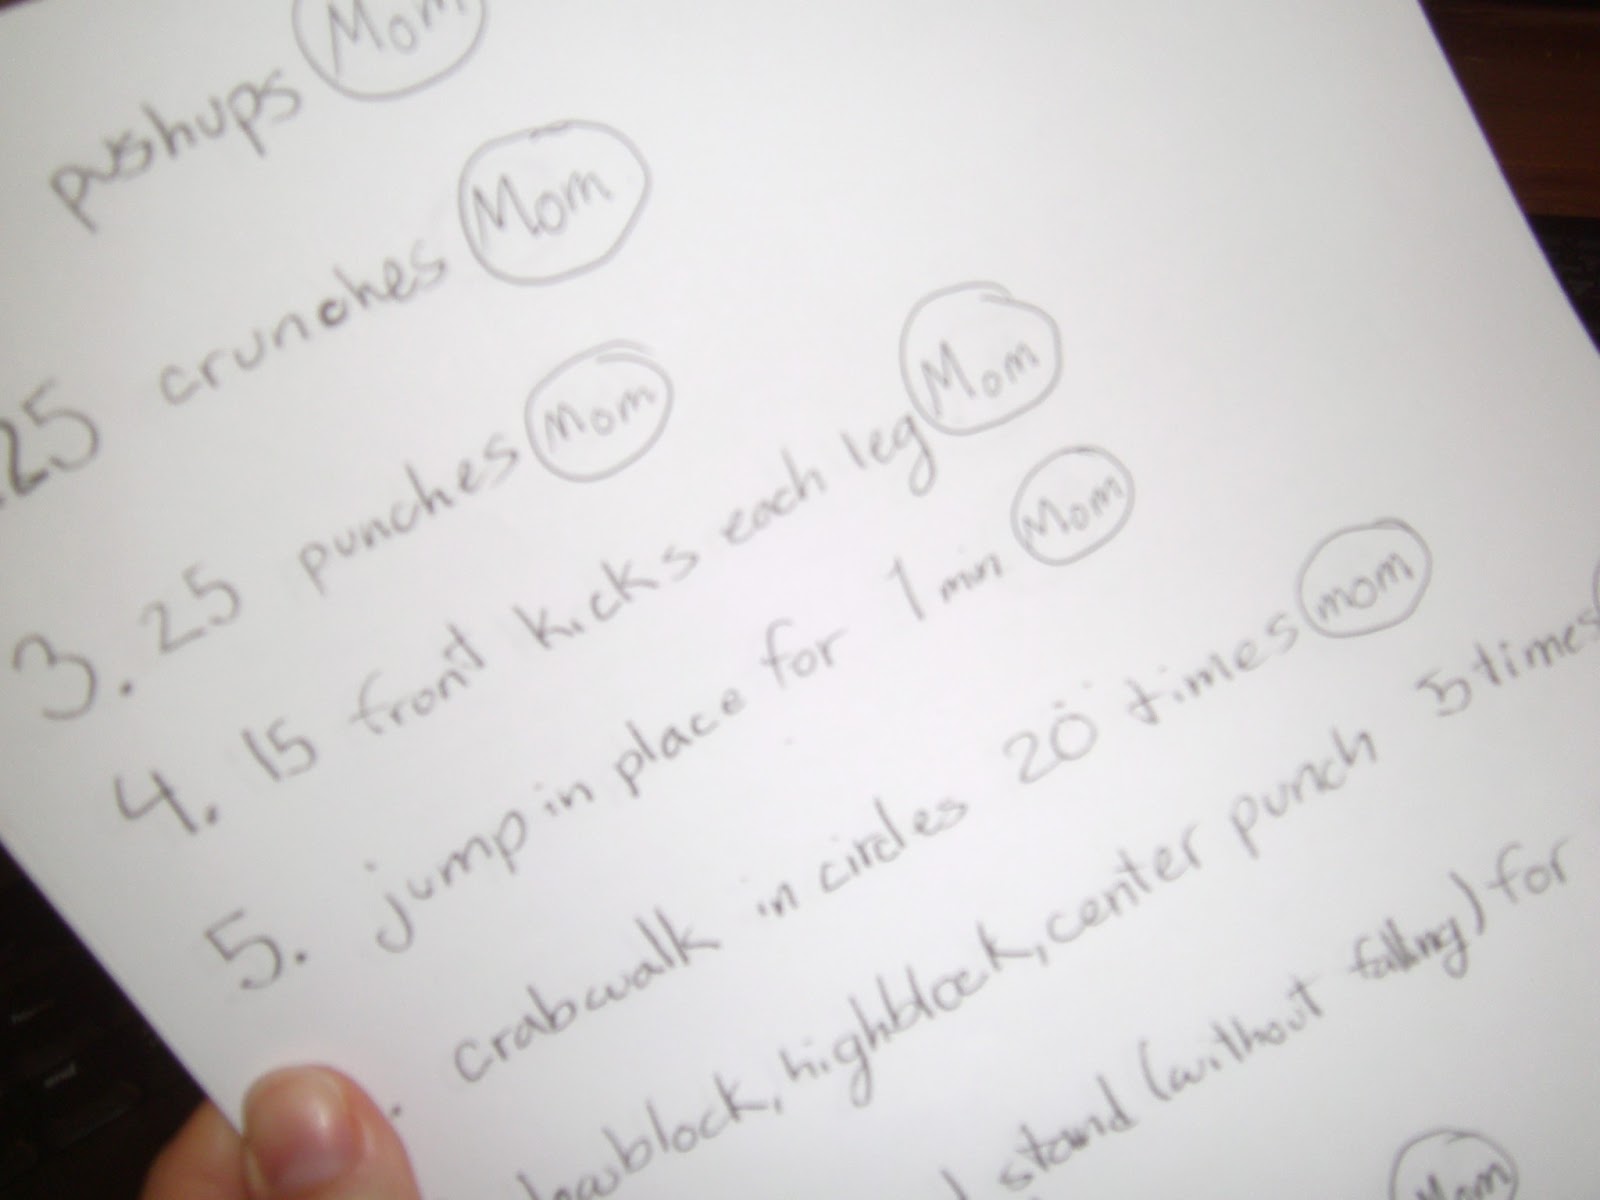 pushups Mom
25 crunches Mom
3. 25 punches Mom
4. 15 front kicks each leg Mom
5. jump in place for 1 min Mom
. crabwalk in circles 20 times mom
lowblock, highblock, center punch 5 times
stand (without falling) for
Mom